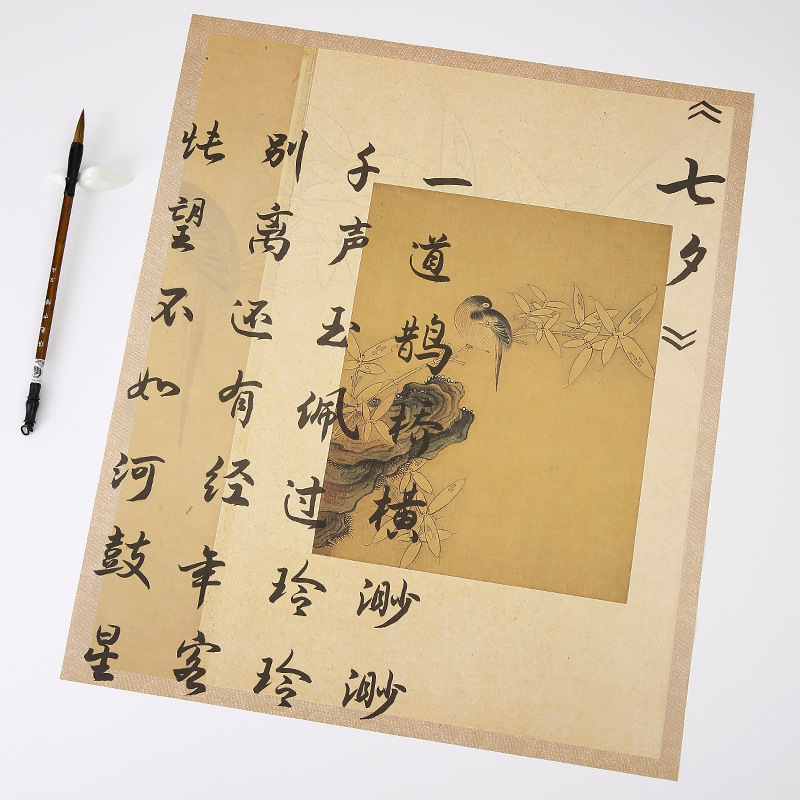 《七夕》
一道鹊桥横渺渺
千声玉佩过玲玲
别离还有经年客
怅望不如河鼓星